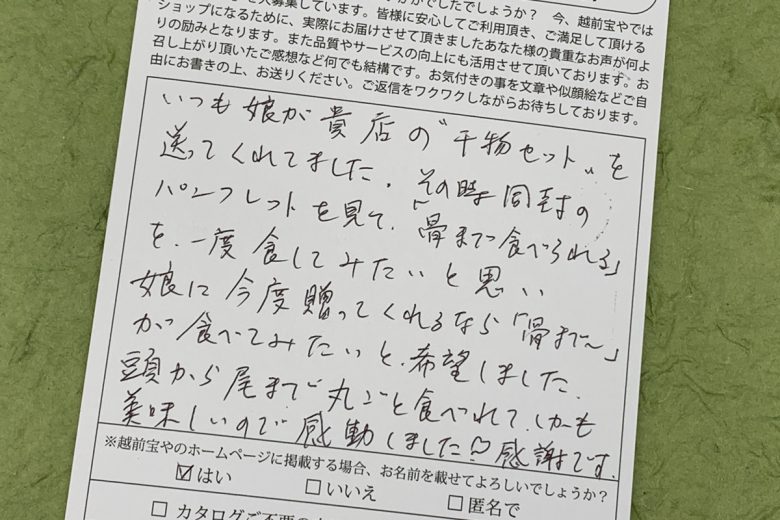 かがでしたでしょうか? 今、越前宝やでは
大募集しています。皆様に安心してご利用頂き、ご満足して頂ける
ショップになるために、実際にお届けさせて頂きましたあなた様の貴重なお声が何よ
りの励みとなります。また品質やサービスの向上にも活用させて頂いております。お
召し上がり頂いたご感想など何でも結構です。お気付きの事を文章や似顔絵などご自
由にお書きの上、お送りください。ご返信をワクワクしながらお待ちしております。
いつも娘が貴店の〝干物セット〟を
送ってくれてました。その時同封の
パンフレットを見て、「骨まで食べられる」
を、一度食してみたいと思い
娘に今度贈ってくれるなら「骨まで〜」
が食べてみたいと、希望しました。
頭から尾まで丸ごと食べれて、しかも
美味しいので感動しました♡感謝です。
※越前宝やのホームページに掲載する場合、お名前を載せてよろしいでしょうか?
☑はい □いいえ □匿名で
□カタログご不要の